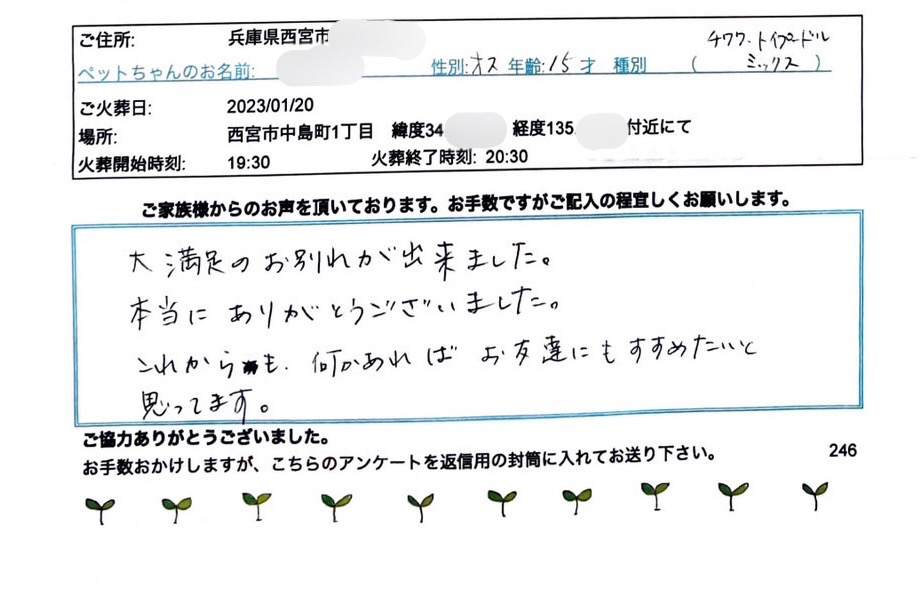 ご住所: 兵庫県西宮市
チワワ・トイプードル
ペットちゃんのお名前: 性別:オス 年齢:15才 種別 ( ミックス )
ご火葬日: 2023/01/20
場所: 西宮市中島町1丁目 緯度34 経度135. 付近にて
火葬開始時刻: 19:30 火葬終了時刻: 20:30
ご家族様からのお声を頂いております。お手数ですがご記入の程宜しくお願いします。
大満足のお別れが出来ました。
本当にありがとうございました。
これからも、何かあれば お友達にもすすめたいと
思ってます。
ご協力ありがとうございました。
お手数おかけしますが、こちらのアンケートを返信用の封筒に入れてお送り下さい。 246